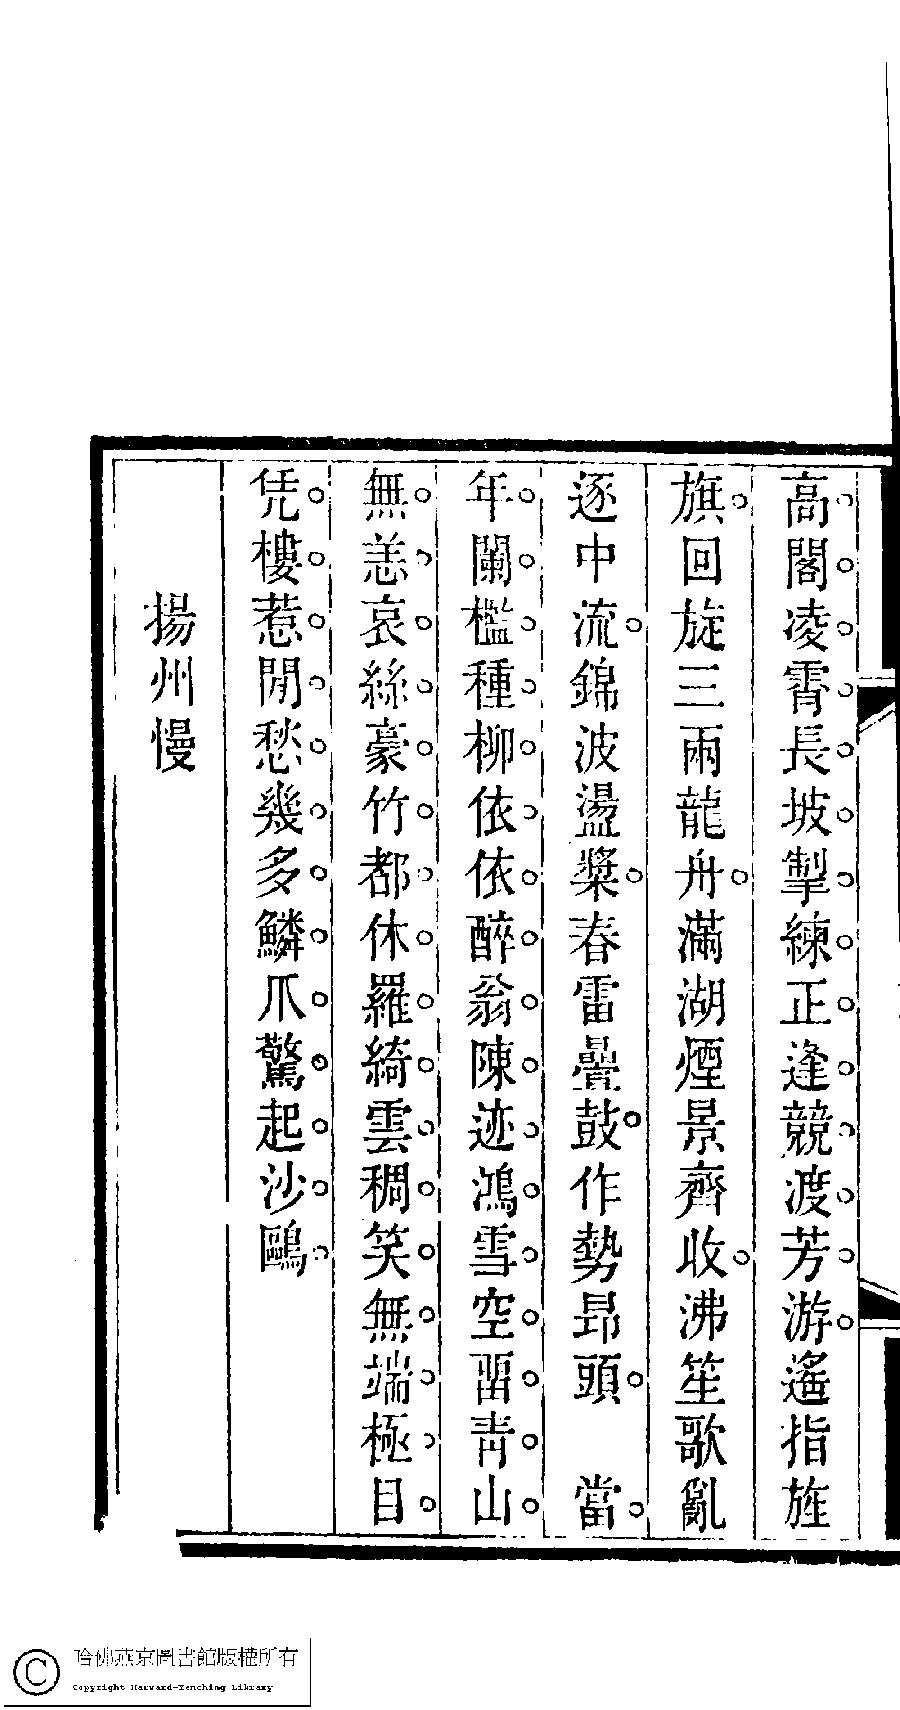 高閣凌霄長坡掣練正逢競渡芳游遙指旌
旗回旋三兩龍舟滿湖煙景齊收沸笙歌亂
逐中流錦波盪槳春雷疊鼓作勢昂頭　當
年闌檻種柳依依醉翁陳迹鴻雪空留青山
無恙哀絲豪竹都休羅綺雲稠笑無端極目
凭樓惹閒愁幾多鱗爪驚起沙鷗
揚州慢
哈佛燕京圖書館版權所有
Copyright Harvard-Yenching Library